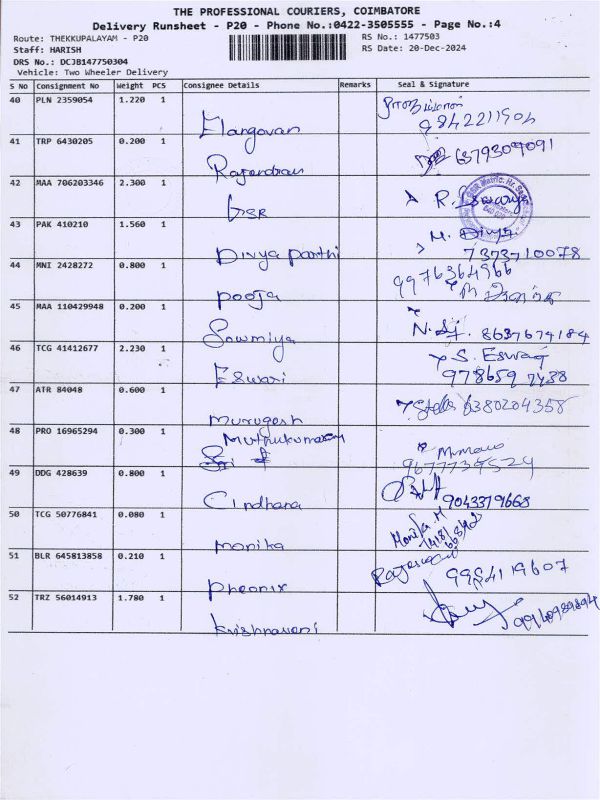 THE PROFESSIONAL COURIERS, COIMBATORE
Delivery Runsheet - P20 - Phone No.:0422-3505555 - Page No.:4
Route: THEKKUPALAYAM - P20
RS No.: 1477503
Staff: HARISH
RS Date: 20-Dec-2024
DRS No.: DCJB147750304
Vehicle: Two Wheeler Delivery
S No Consignment No Weight PCS Consignee Details Remarks Seal & Signature
40 PLN 2359054 1.220 1
Elangovan 9842211904
41 TRP 6430205 0.200 1
Rajendran 6379309091
42 MAA 706203346 2.300 1
GSR R. Eswarya
43 PAK 410210 1.560 1
Divya parthi M. Divya
7373710078
44 MNI 2428272 0.800 1
9976364966
pooja
45 MAA 110429948 0.200 1
Sowmiya N. 8637674184
46 TCG 41412677 2.230 1
S. Eswari
Eswari 9786597438
47 ATR 84048 0.600 1
Murugesh Stella 6380204358
48 PRO 16965294 0.300 1
Muthukumaran
9677734524
49 DDG 428639 0.800 1
Cindhana 9043379668
50 TCG 50776841 0.080 1
Monika Monika M
51 BLR 645813858 0.210 1
Pheonix 9984119607
52 TRZ 56014913 1.780 1
Krishnaveni